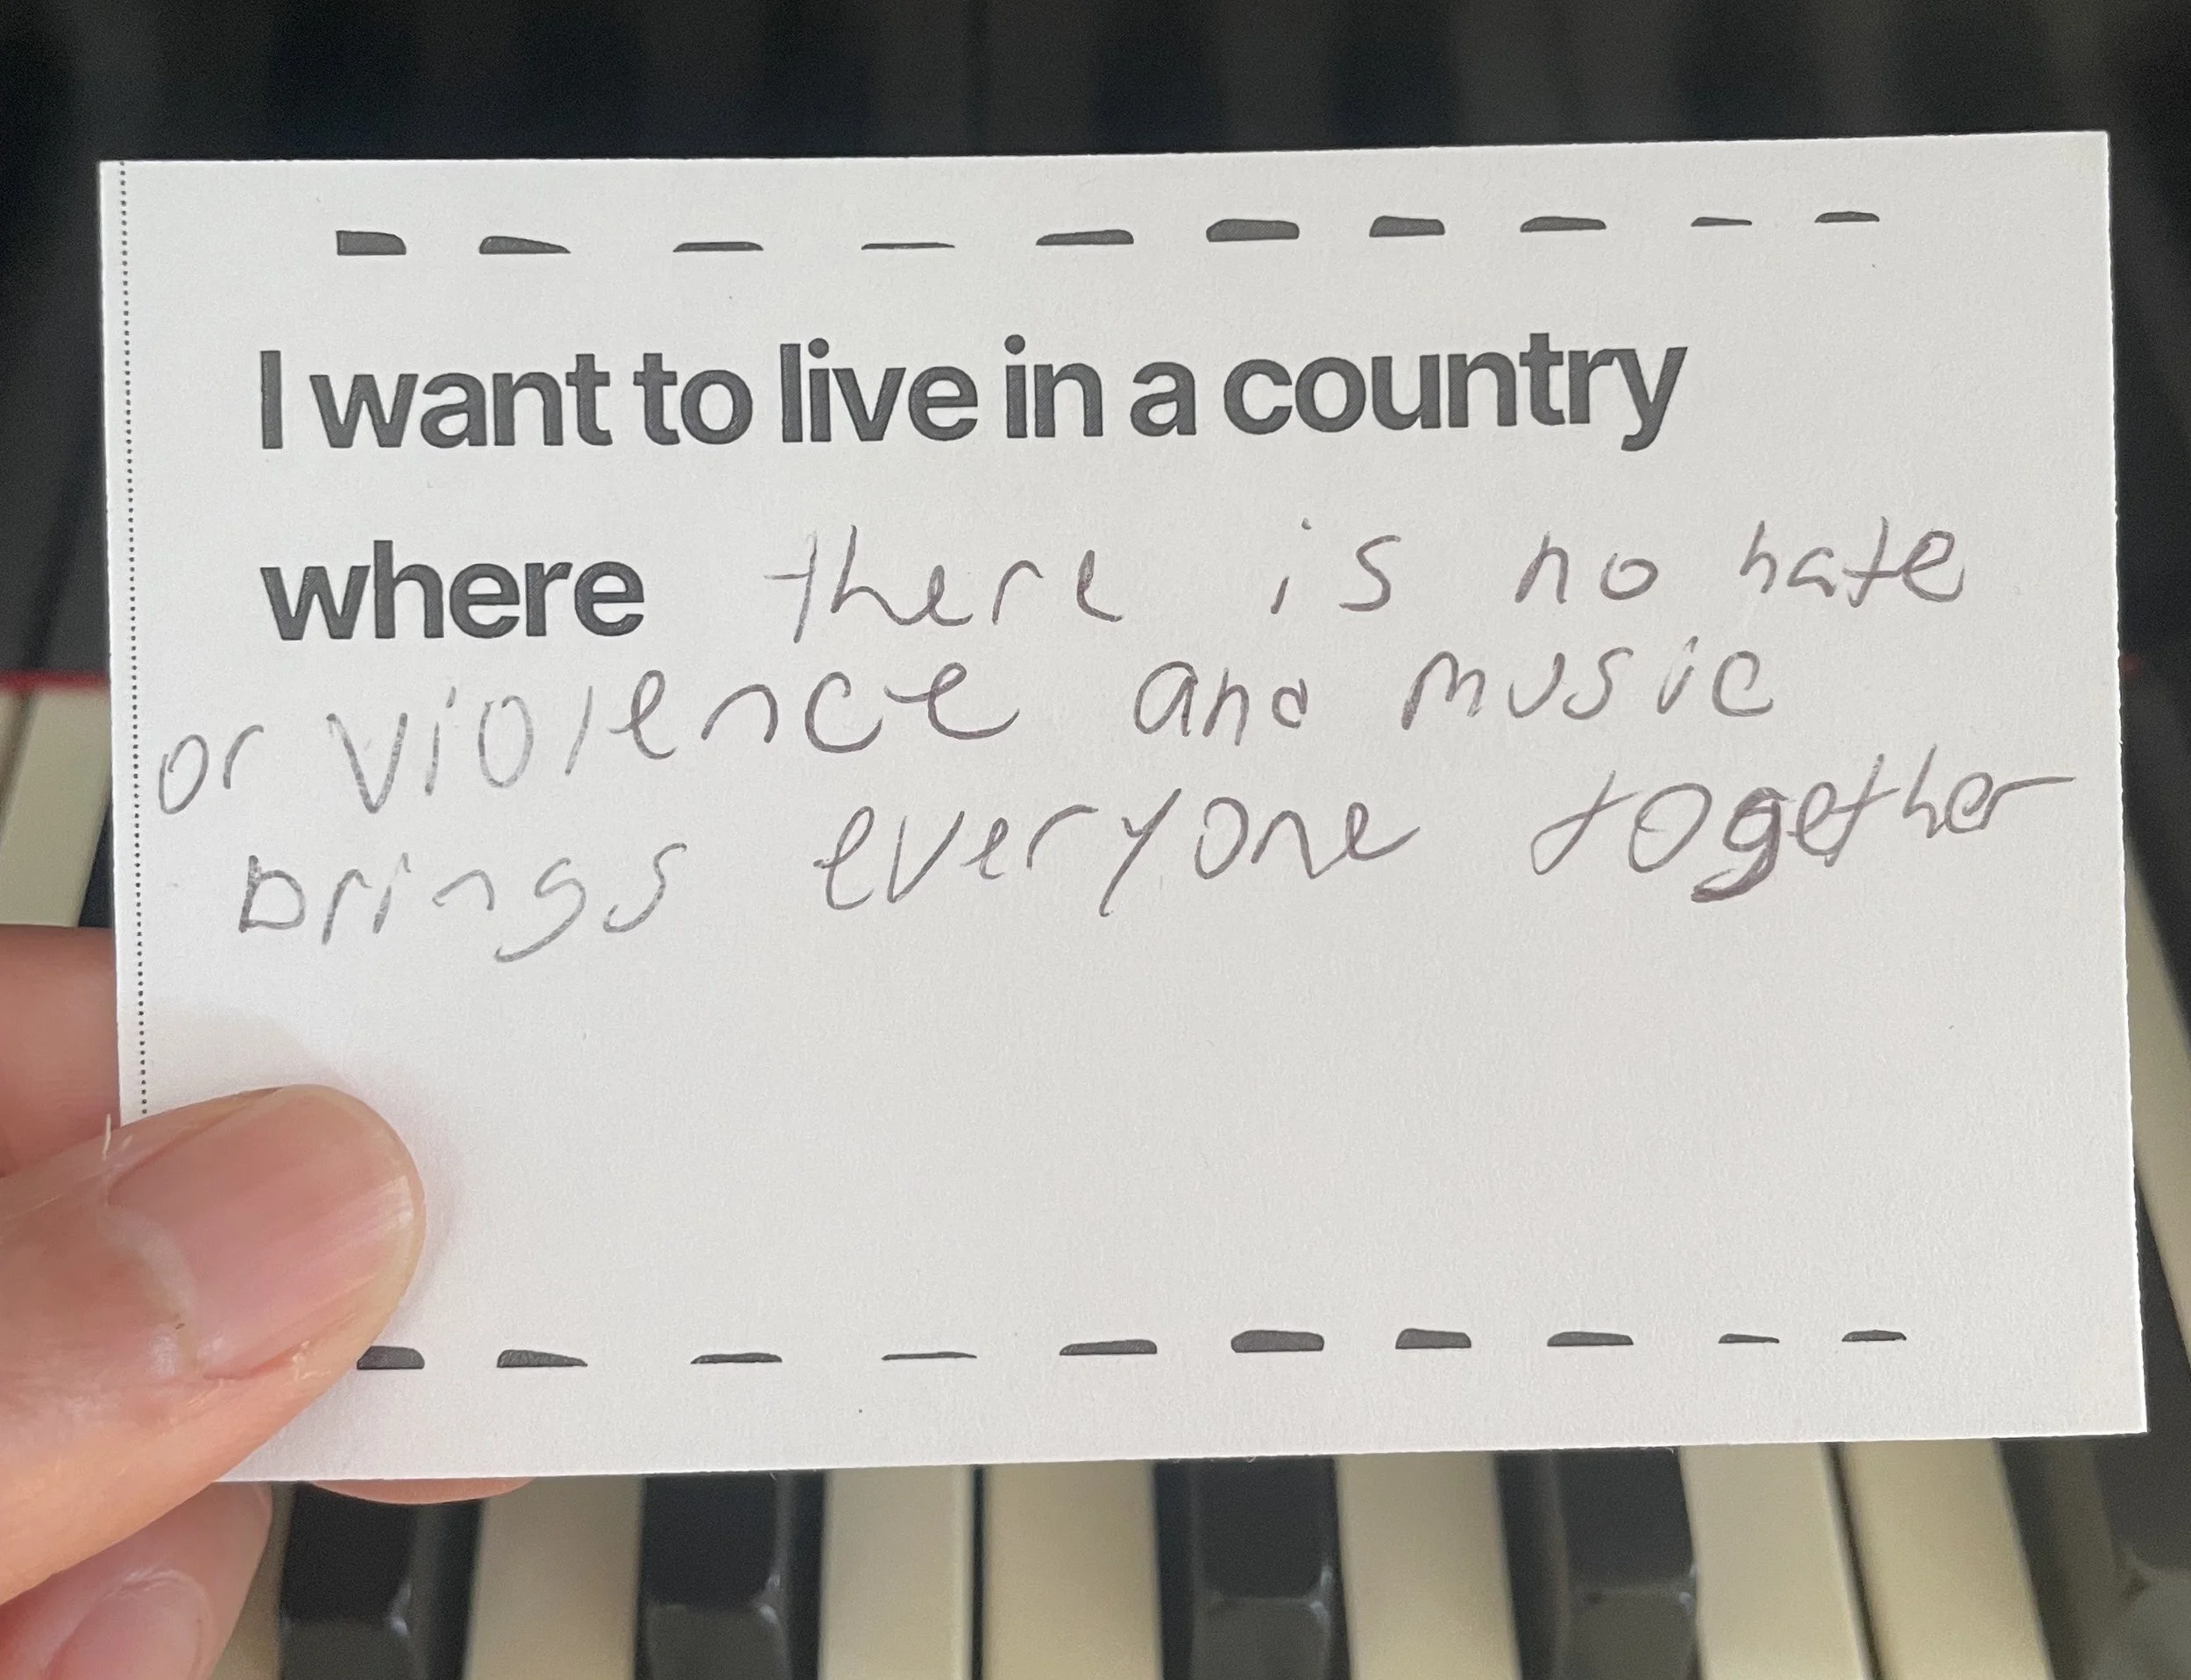 I want to live in a country
where there is no hate
or violence and music
brings everyone together